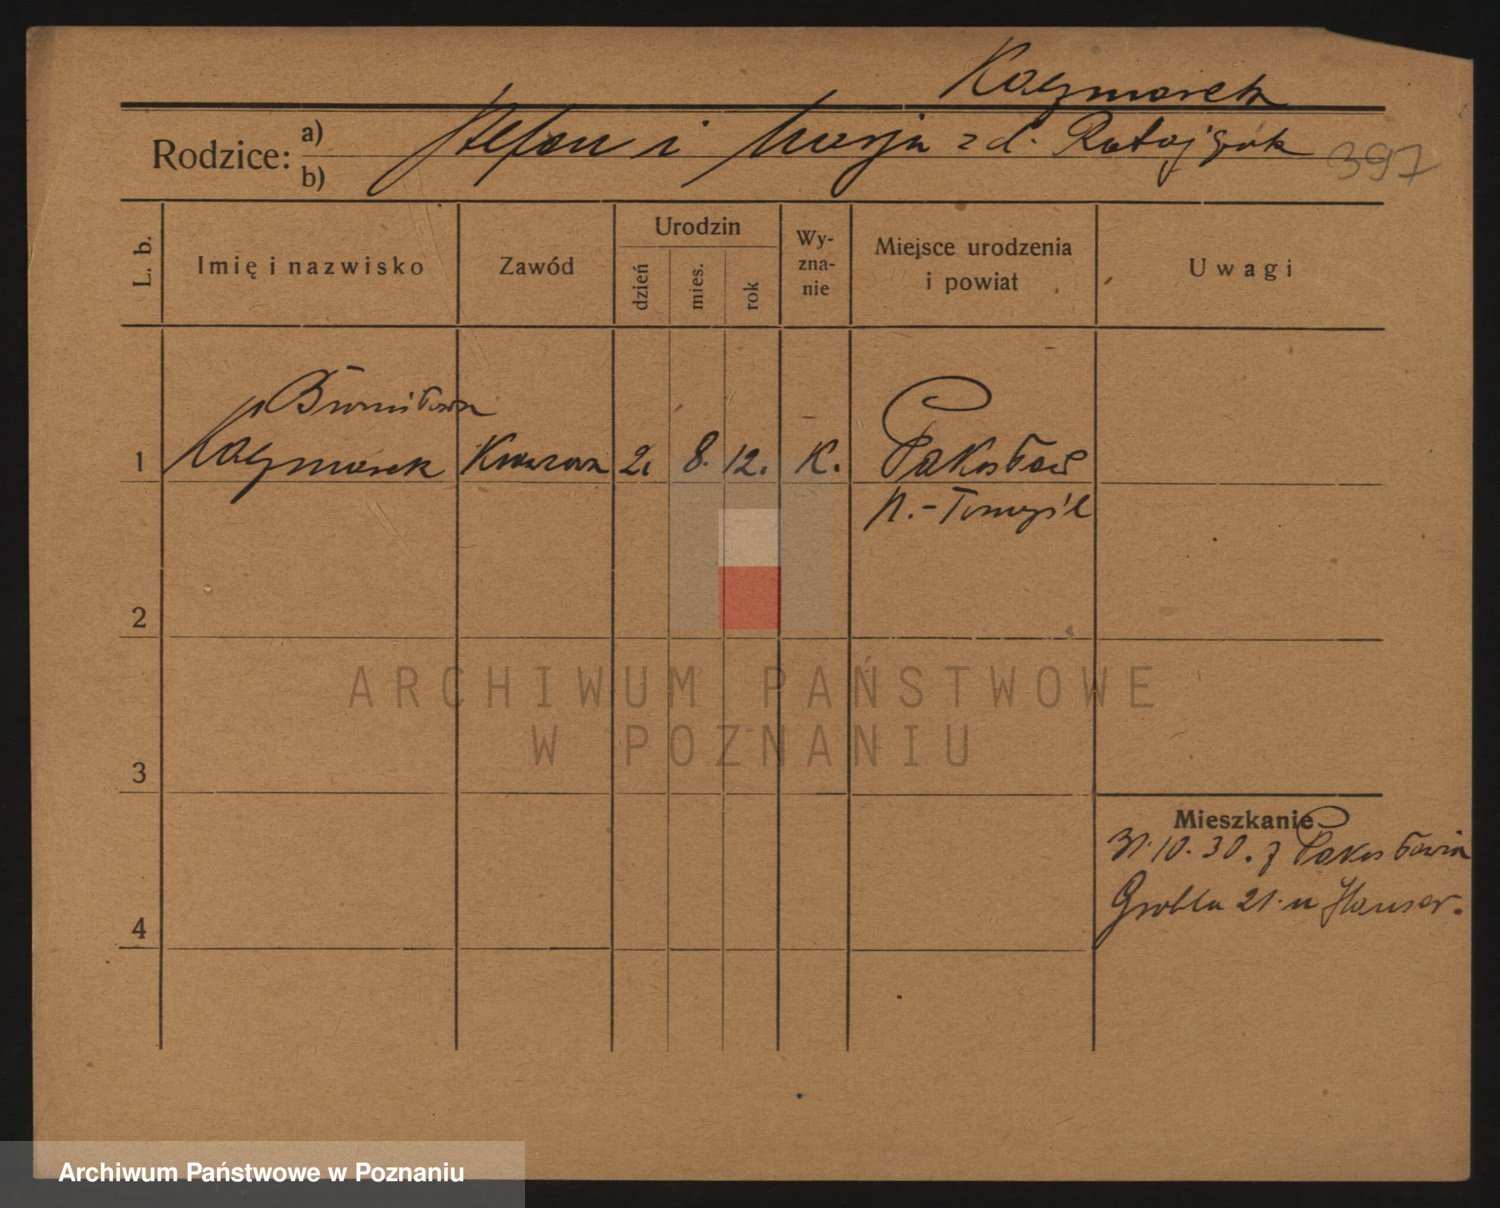 Kaczmarek
Rodzice: a) b) Stefan i Marja z d. Ratajczak 397
L. b. Imię i nazwisko Zawód Urodzin dzień mies. rok Wyzna-nie Miejsce urodzenia i powiat Uwagi
Bronisława
1 Kaczmarek Krawcowa 2. 8. 12. K. Pakosław
N.-Tomyśl
2
3
Mieszkanie
31.10.30. z Pakosławia
Grobla 21. u Hauser.
4
ARCHIWUM PAŃSTWOWE
W POZNANIU
Archiwum Państwowe w Poznaniu